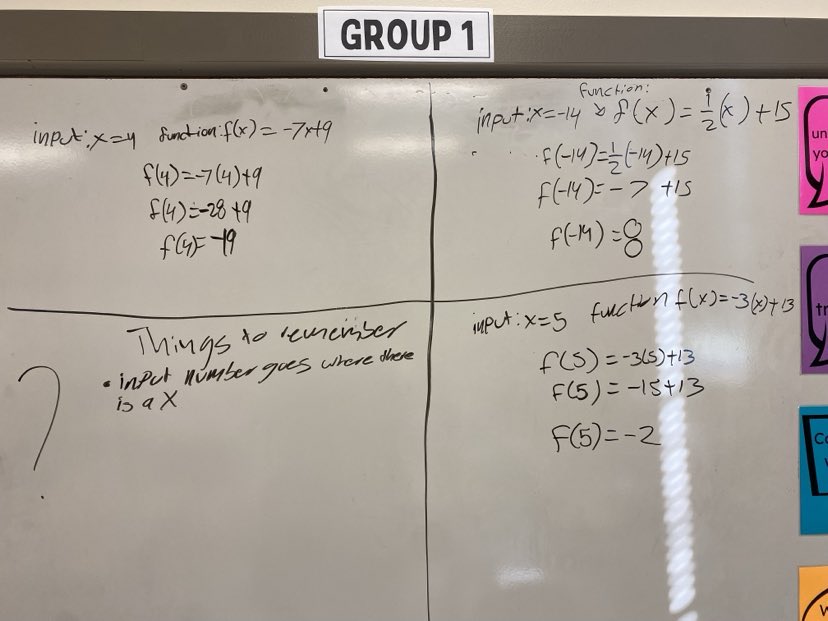 GROUP 1
input: x=4 function: f(x) = -7x+9
f(4)=-7(4)+9
f(4)=-28+9
f(4)=-19
function:
input: x=-14 f(x) = 1/2(x) + 15
f(-14)=1/2(-14)+15
f(-14)= -7 +15
f(-14) = 8
Things to remember
• input number goes where there
is a X
?
input: x=5 function f(x)=-3(x)+13
f(5) = -3(5)+13
f(5) = -15+13
f(5) = -2
un
yo
tr
Co